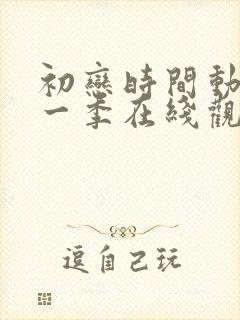 初戀時間動
一季在綫觀
逗自己玩